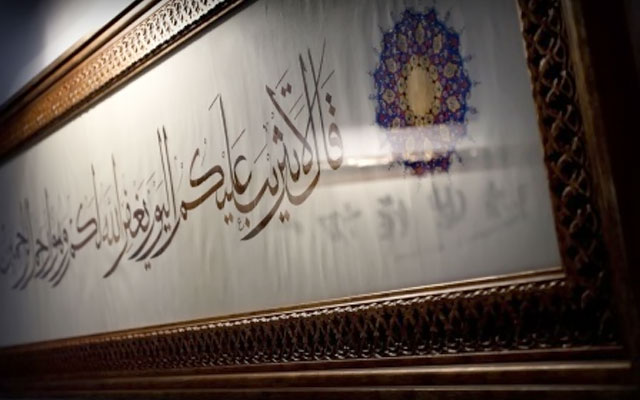 قال لا تثريب عليكم اليوم يغفر الله لكم وهو ارحم الراحمين